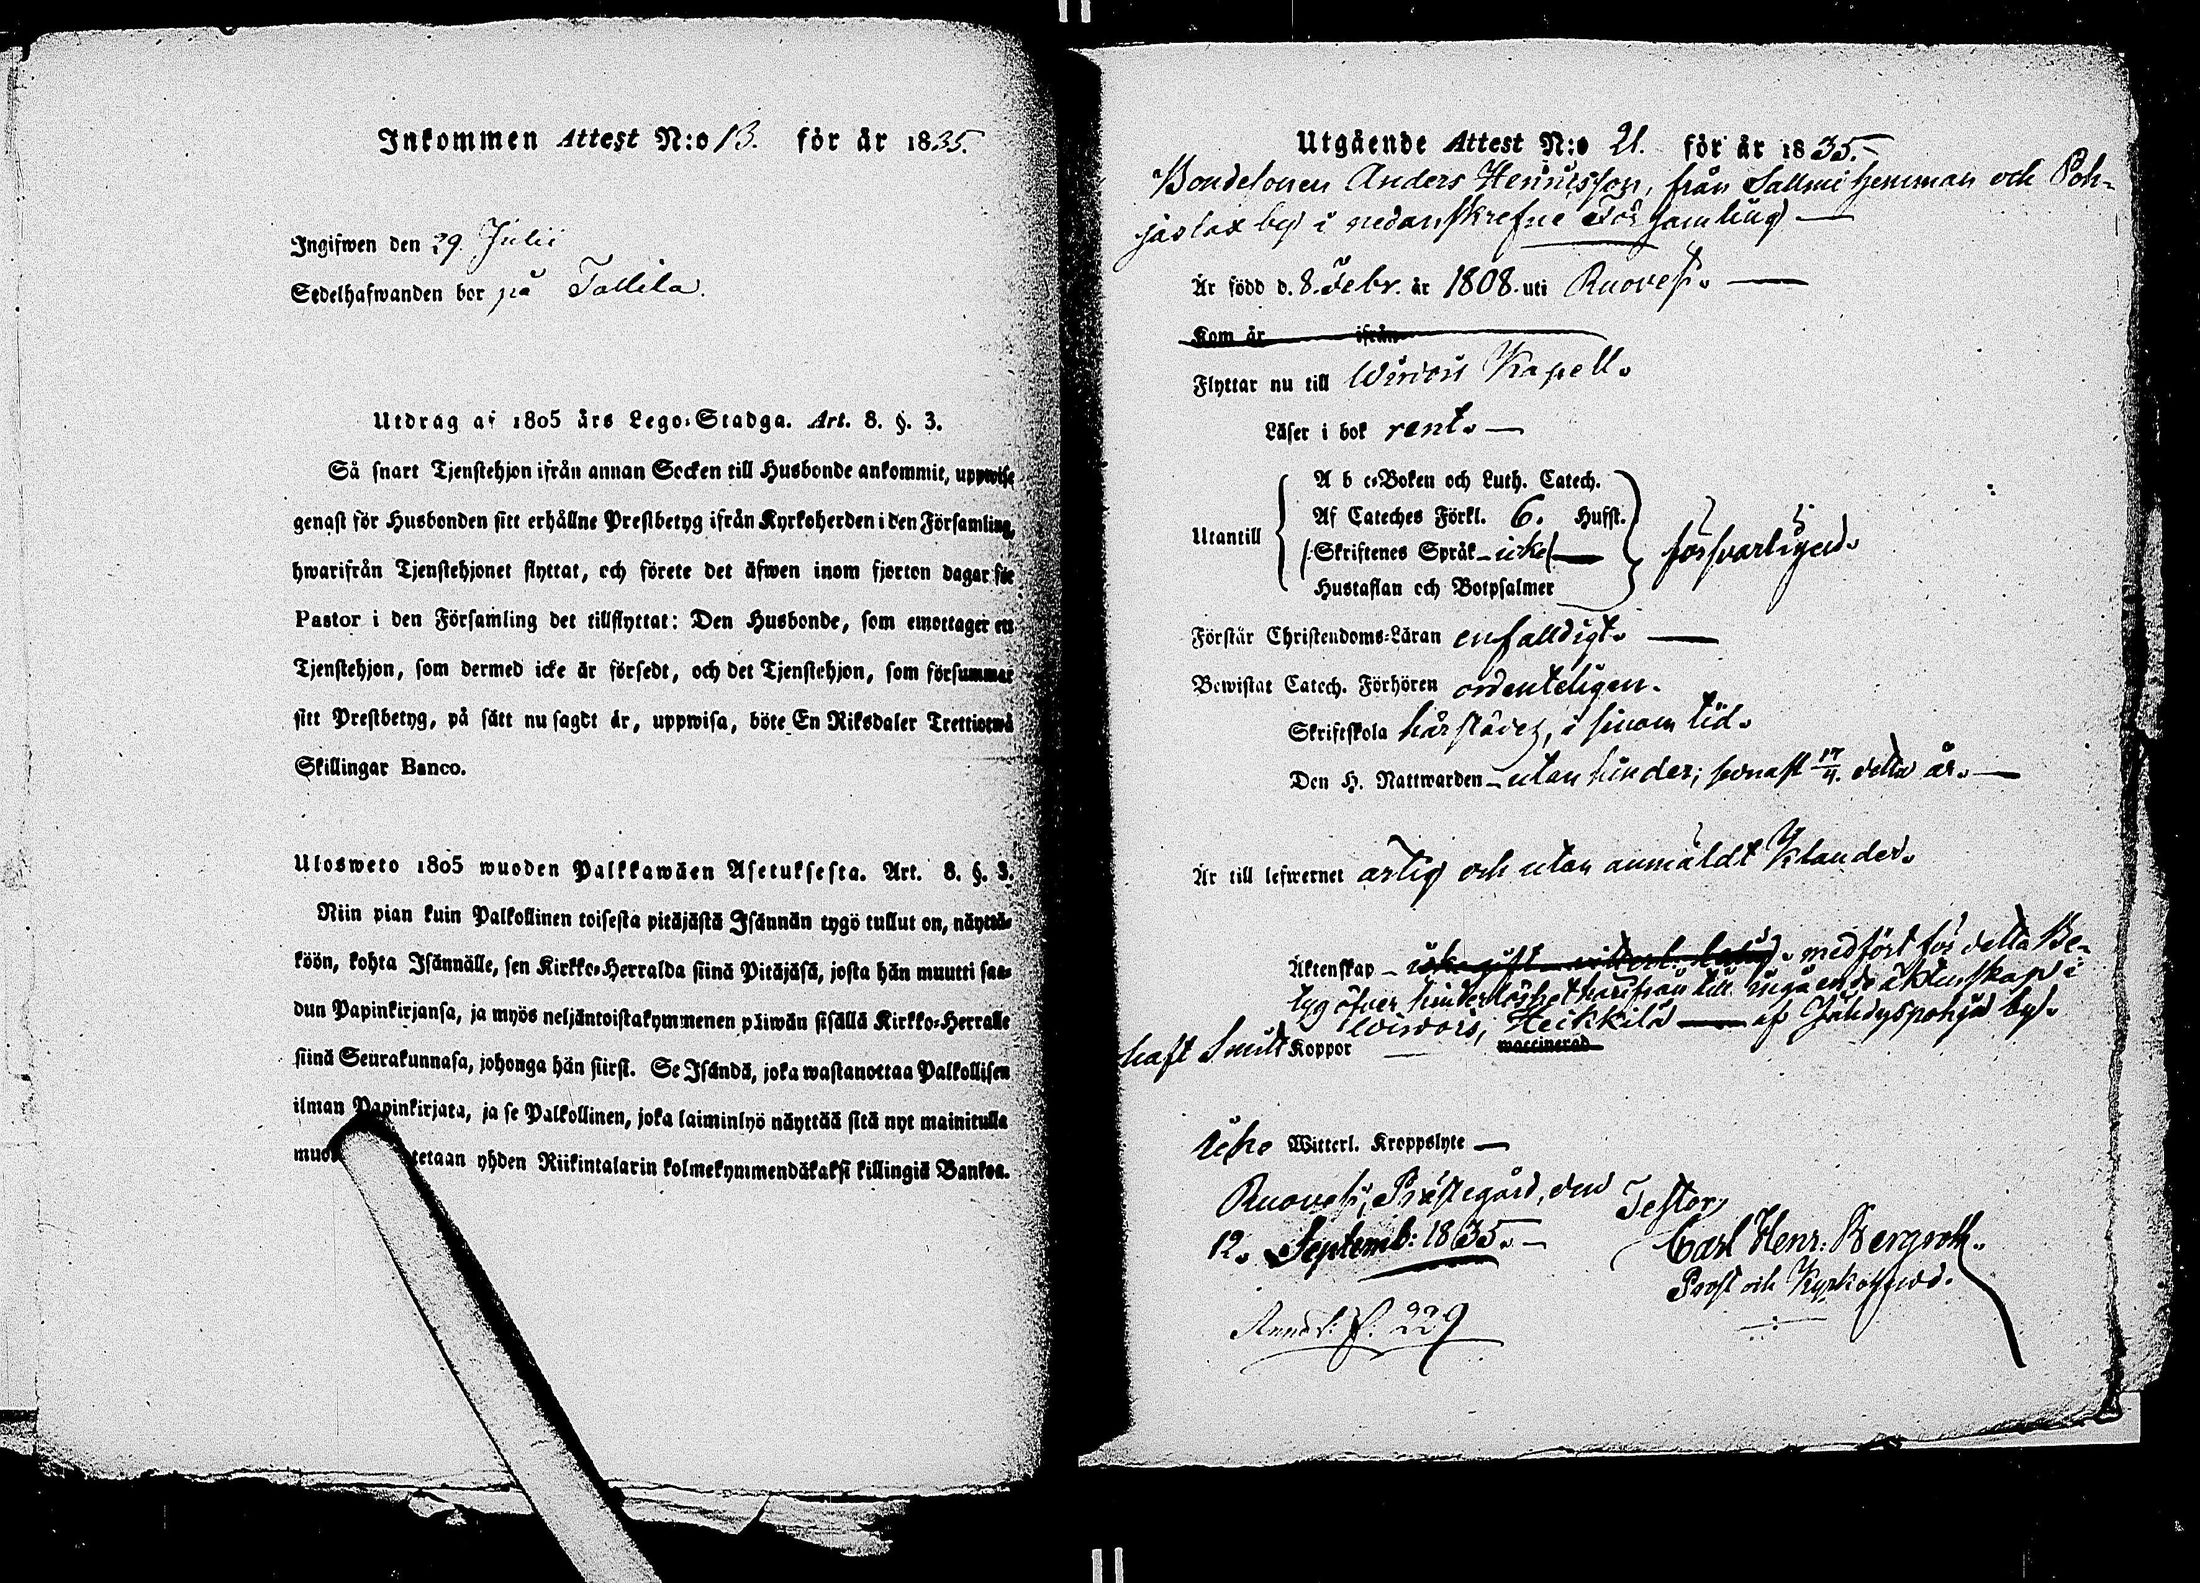 Inkommen Attest N:o 13. för år 1835.
Ingifwen den 29 Julii
Sedelhafwanden bor på Tallila.
Utdrag af 1805 års Lego-Stadga. Art. 8. §. 3.
Så snart Tjenstehjon ifrån annan Socken till Husbonde ankommit, uppwise
genast för Husbonden sitt erhållne Prestbetyg ifrån Kyrkoherden i den Församling,
hwarifrån Tjenstehjonet flyttat, och förete det äfwen inom fjorton dagar för
Pastor i den Församling det tillflyttat: Den Husbonde, som emottager ett
Tjenstehjon, som dermed icke är försedt, och det Tjenstehjon, som försummar
sitt Prestbetyg, på sätt nu sagdt är, uppwisa, böte En Riksdaler Trettiotwå
Skillingar Banco.
Ulosweto 1805 wuoden Palkkawäen Asetuksesta. Art. 8. §. 3.
Niin pian kuin Palkollinen toisesta pitäjästä Isännän tygö tullut on, näyttä-
köön, kohta Isännälle, sen Kirkko-Herralda siinä Pitäjäsä, josta hän muutti saa-
dun Papinkirjansa, ja myös neljäntoistakymmenen päiwän sisällä Kirkko-Herralle
siinä Seurakunnasa, johonga hän siirst. Se Isändä, joka wastanottaa Palkollisen
ilman Papinkirjata, ja se Palkollinen, joka laiminlyö näyttää sitä nyt mainitulla
muo tetaan yhden Riikintalarin kolmekymmendäkaksi killingiä Bankoa.
Utgående Attest N:o 21. för år 1835.
Bondesonen Anders Henricsson, från Sallmi hemman och Poh-
jaslax by i nedanskrefne Församling
Är född d. 8. Febr. år 1808. uti Ruovesi.
Kom år ifrån
Flyttar nu till Wirdois Kapell.
Läser i bok rent.
Utantill
A b c-Boken och Luth. Catech.
Af Cateches Förkl. 6. Hufst.
Skriftenes Språk icke
Hustaflan och Botpsalmer
försvarligen.
Förstår Christendoms-Läran enfalldigt.
Bewistat Catech. Förhören ordenteligen.
Skriftskola härstädes, i sinom tid.
Den H. Nattwarden utan hinder; senast 17/4. detta år.
Är till lefwernet artig och utan anmäldt Klander.
Äktenskap icke gift medfört för detta Be-
tyg öfver hinderlöshet härifrån till ingående äktenskap i
Wirdois, Heikkilä af Jähdyspohja by.
haft Smitt Koppor vaccinerad
icke Witterl. Kroppslyte
Ruovesi, Prästegård, den
12. Septemb: 1835.
Testor,
Carl Henr. Bergroth.
Prost och Kyrkoherde.
229